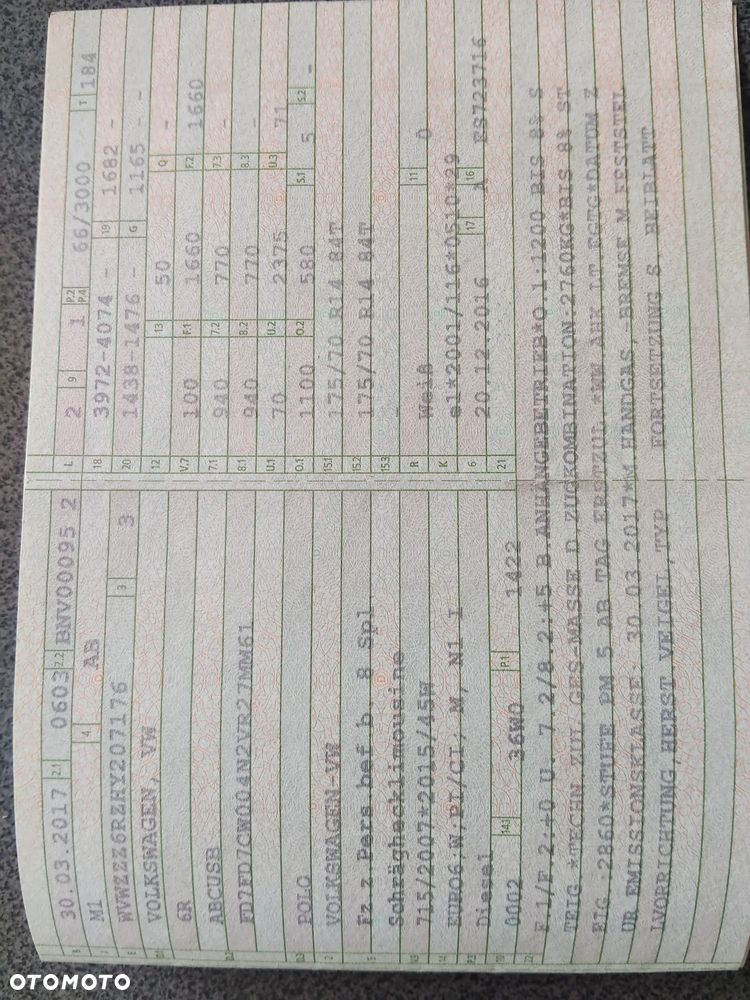 B 30.03.2017 2.1 0603 2.2 BNV00095 2
J M1 4 AB
E WVWZZZ6RZHY207176 3 3
D.1 VOLKSWAGEN, VW
6R
D.2 ABCUSB
FD7FD7CW004N2VR27MM61
D.3 POLO
2 VOLKSWAGEN-VW
5 Fz.z.Pers.bef.b. 8 Spl.
Schräghecklimousine
V.9 715/2007*2015/45W
14 EURO6;W;PI/CI; M, N1 I
P.3 Diesel
10 0002 14.1 36W0 P.1 1422
L 2 9 1 P.2 P.4 66/3000 T 184
18 3972-4074 - 19 1682 -
20 1438-1476 - G 1165 - -
12 - 13 50 Q -
V.7 100 F.1 1660 F.2 1660
7.1 940 7.2 770 7.3 -
8.1 940 8.2 770 8.3 -
U.1 70 U.2 2375 U.3 71
O.1 1100 O.2 580 S.1 5 S.2 -
15.1 175/70 R14 84T
15.2 175/70 R14 84T
15.3 -
R Weiß 11 0
K e1*2001/116*0510*29
6 20.12.2016 17 A 16 ES723716
21
22 F.1/F.2:+0 U. 7.2/8.2:+5 B.ANHÄNGEBETRIEB*O.1:1200 BIS 8% S
TEIG.*TECHN.ZUL.GES-MASSE D.ZUGKOMBINATION:2760KG*BIS 8% ST
EIG.:2860*STUFE PM 5 AB TAG ERSTZUL.*WW.AHK LT.EGTG*DATUM Z
UR EMISSIONSKLASSE: 30.03.2017*M.HANDGAS,-BREMSE M.FESTSTEL
LVORRICHTUNG,HERST.VEIGEL,TYP FORTSETZUNG S. BEIBLATT
OTOMOTO